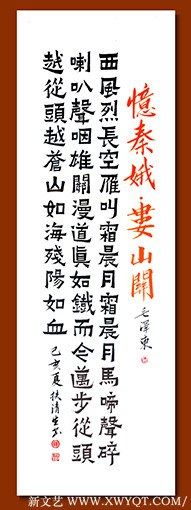 憶秦娥 婁山關
毛澤東
西風烈長空雁叫霜晨月霜晨月馬啼聲碎
喇叭聲咽雄關漫道眞如鐵而今邁步從頭
越從頭越蒼山如海殘陽如血
己亥夏
新文艺 WWW.XWYQT.COM/